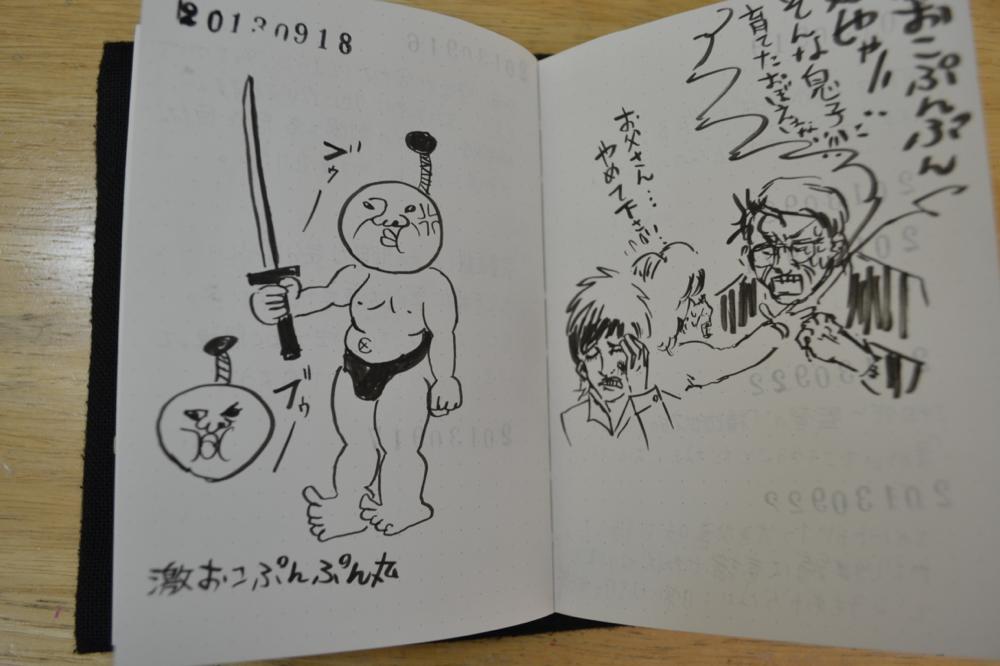 20130918
ブゥ
ブゥ
激おこぷんぷん丸
おこぷんぷん
じゃ!!
そんな息子に
育てたおぼえ
お父さん…
やめて下さい…